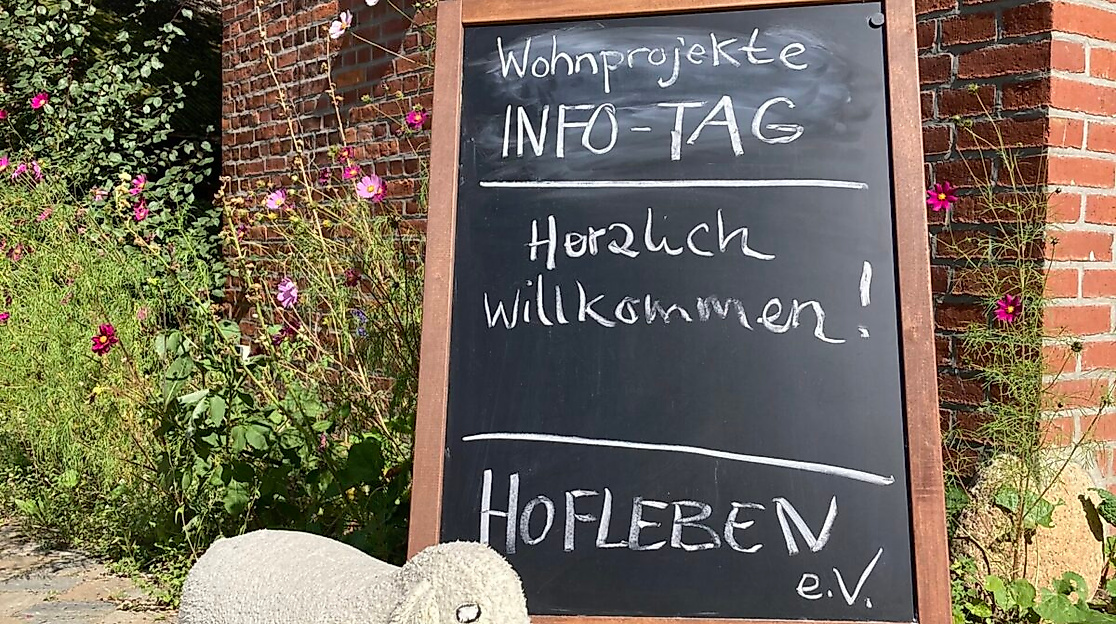 Wohnprojekte
INFO-TAG
Herzlich
Willkommen!
HOFLEBEN
e.V.